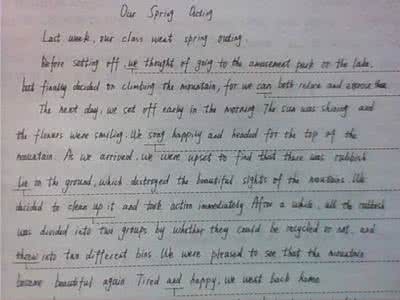 Our Spring Outing
Last week, our class went spring outing.
Before setting off, we thought of going to the amusement park or the lake,
but finally decided on climbing the mountain, for we can both relax and exercise there
The next day, we set off early in the morning. The sun was shining and
the flowers were smiling. We song happily and headed for the top of the
mountain. As we arrived, we were upset to find that there was rubbish
lie on the ground, which destroyed the beautiful sights of the mountains. We
decided to clean up it and took action immediately. After a while, all the rubbish
was divided into two groups by whether they could be recycled or not, and
threw into two different bins. We were pleased to see that the mountain
became beautiful again. Tired and happy, we went back home.